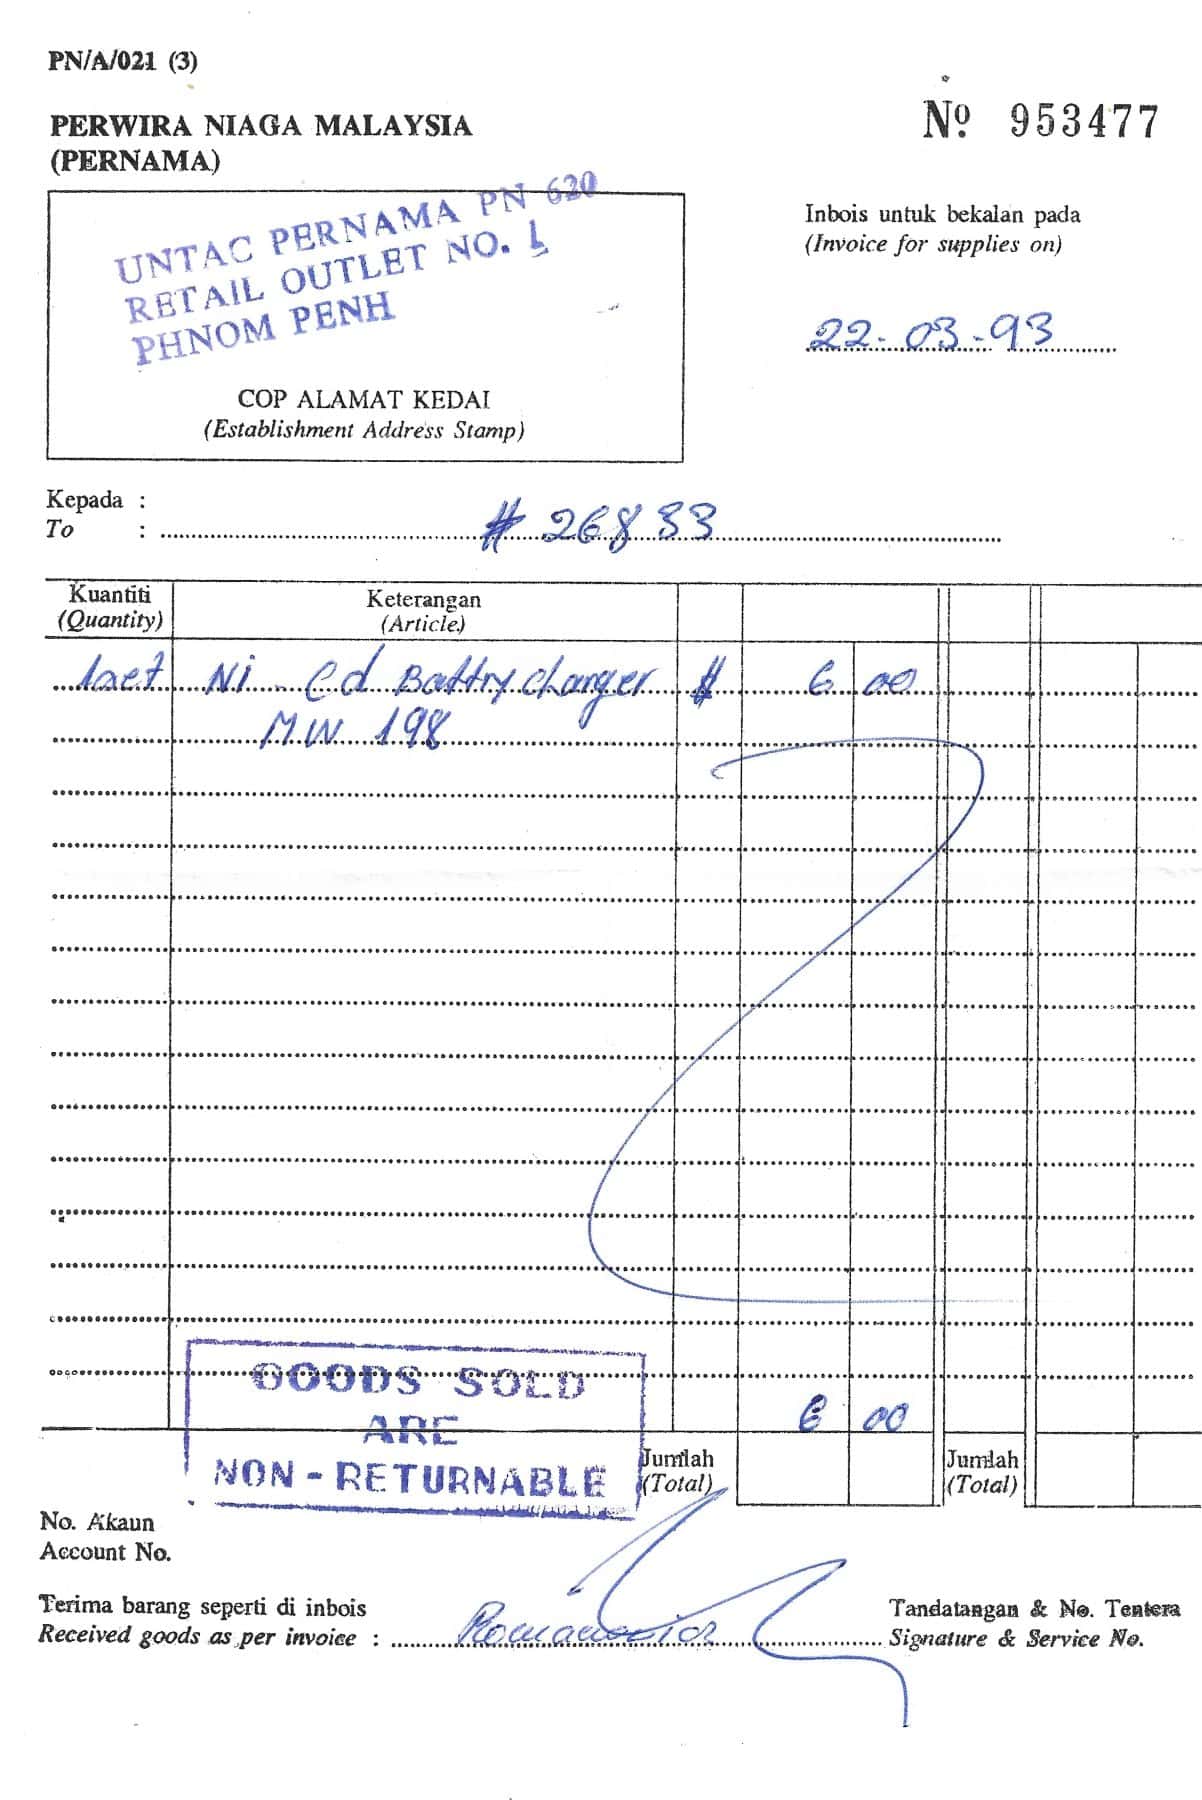 PN/A/021 (3)
PERWIRA NIAGA MALAYSIA
(PERNAMA)
Nº 953477
UNTAC PERNAMA PN 620
RETAIL OUTLET NO. 1
PHNOM PENH
COP ALAMAT KEDAI
(Establishment Address Stamp)
Inbois untuk bekalan pada
(Invoice for supplies on)
22-03-93
Kepada :
To : # 26833
Kuantiti Keterangan
(Quantity) (Article)
Ni-Cd Battry charger $ 6 00
MW 198
GOODS SOLD
ARE
NON-RETURNABLE
6 00
Jumlah Jumlah
(Total) (Total)
No. Akaun
Account No.
Terima barang seperti di inbois
Received goods as per invoice :
Tandatangan & No. Tentera
Signature & Service No.